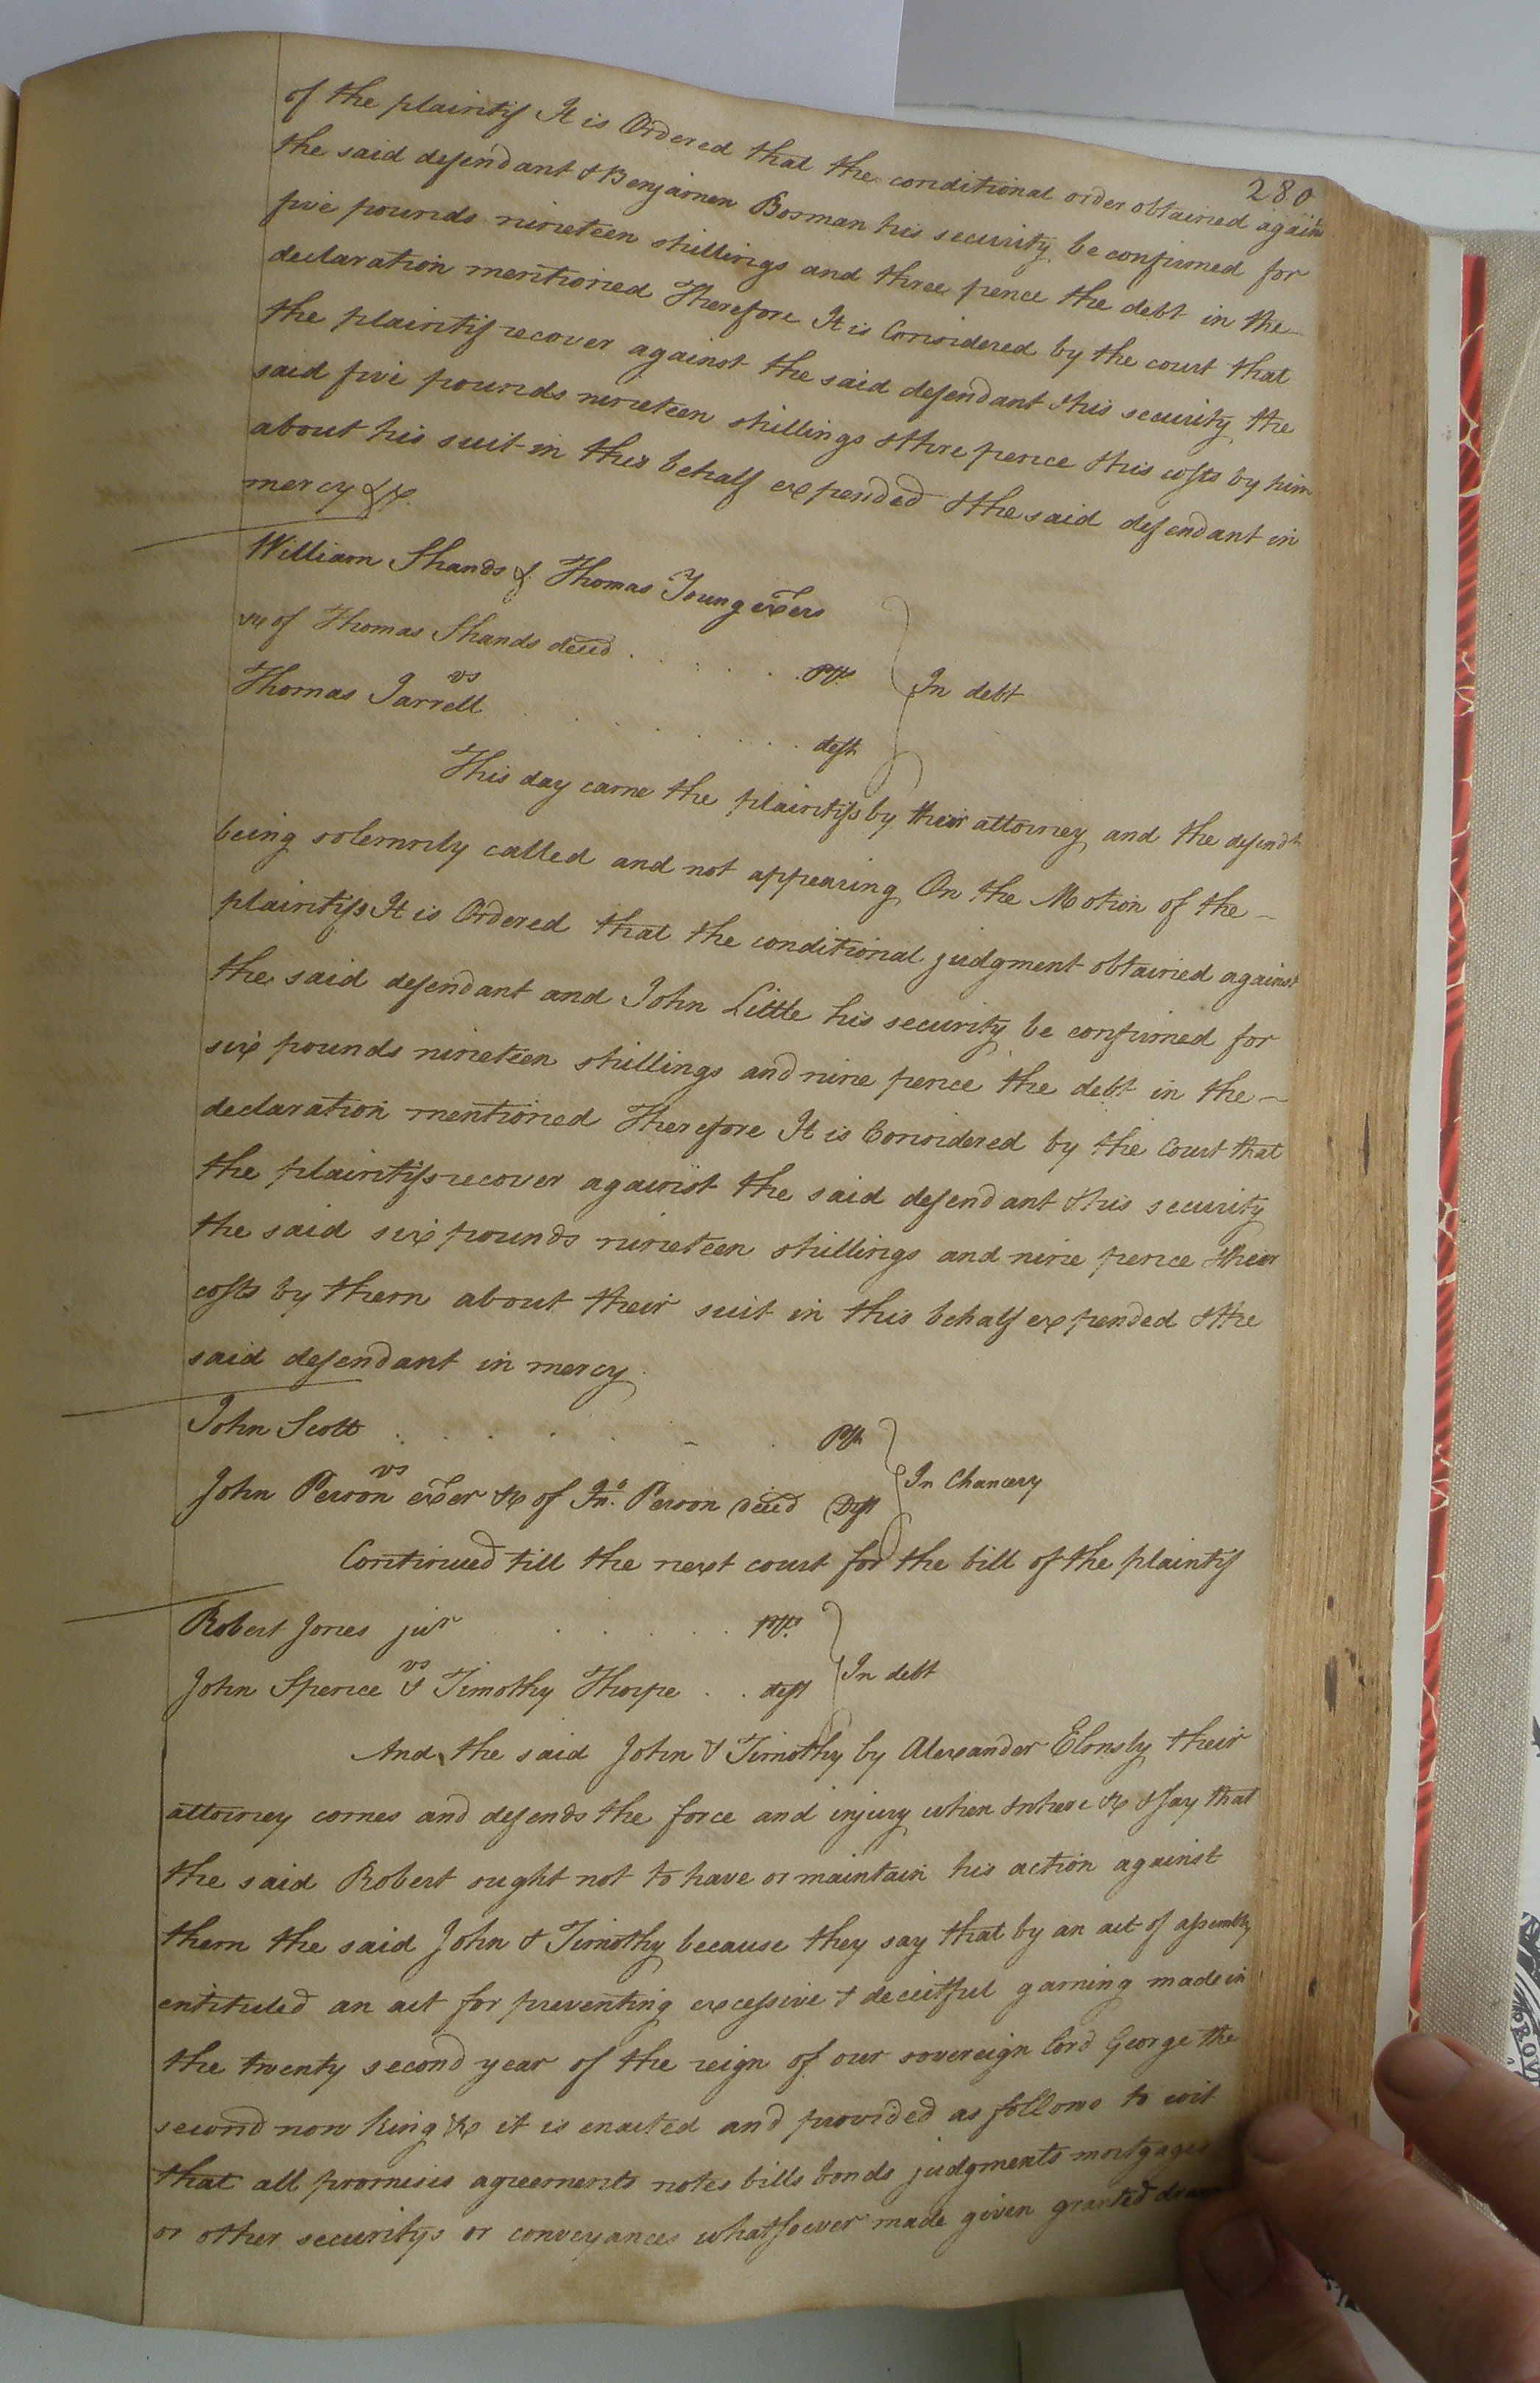 280
of the plaintif It is Ordered that the conditional order obtained again
the said defendant & Benjamen Bosman his security be confirmed for
five pounds nineteen shillings and three pence the debt in the
declaration mentioned Therefore It is Considered by the court that
the plaintif recover against the said defendant & his security the
said five pounds nineteen shillings & thre pence & his costs by him
about his suit in this behalf expended & the said defendant in
mercy &c.
William Shands & Thomas Young exers
&c of Thomas Shands deced . . . . . . plts
vs
In debt
Thomas Jarrell . . . . . . deft
This day came the plaintifs by their attorney and the defendt
being solemnly called and not appearing On the Motion of the
plaintifs It is Ordered that the conditional judgment obtained against
the said defendant and John Little his security be confirmed for
six pounds nineteen shillings and nine pence the debt in the
declaration mentioned Therefore It is Considered by the Court that
the plaintifs recover against the said defendant & his security
the said six pounds nineteen shillings and nine pence & their
costs by them about their suit in this behalf expended & the
said defendant in mercy.
John Scott . . . . . . Plt
vs
In Chancery
John Person exer &c of Jno. Person deced Deft
Continued till the next court for the bill of the plaintif
Robert Jones junr . . . . . plt.
vs
In debt
John Spence & Timothy Thorpe . . deft
And the said John & Timothy by Alexander Elmsly their
attorney comes and defends the force and injury when & where &c & say that
the said Robert ought not to have or maintain his action against
them the said John & Timothy because they say that by an act of assembly
entituled an act for preventing excessive & deceitful gaming made in
the twenty second year of the reign of our sovereign lord George the
second now king &c it is enacted and provided as follows to wit
that all promises agreements notes bills bonds judgments mortgages
or other securitys or conveyances whatsoever made given granted